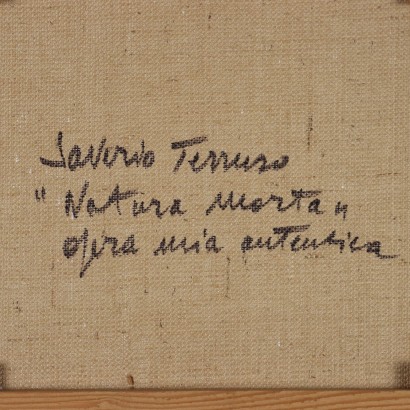 Saverio Terruso
"Natura morta"
opera mia autentica